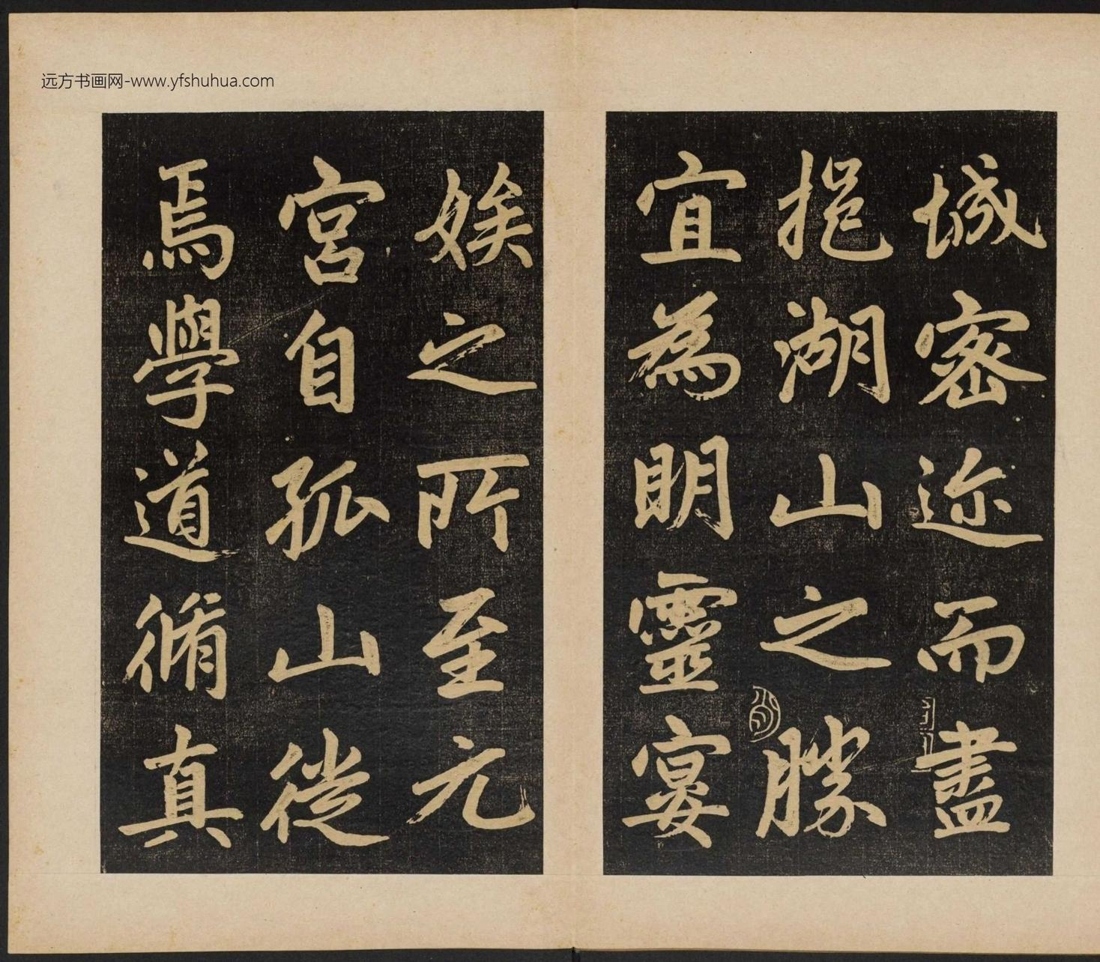 远方书画网-www.yfshuhua.com
城密迩而盡
挹湖山之勝
宜為明靈宴
娭之所至元
宮自孤山徙
焉學道脩真